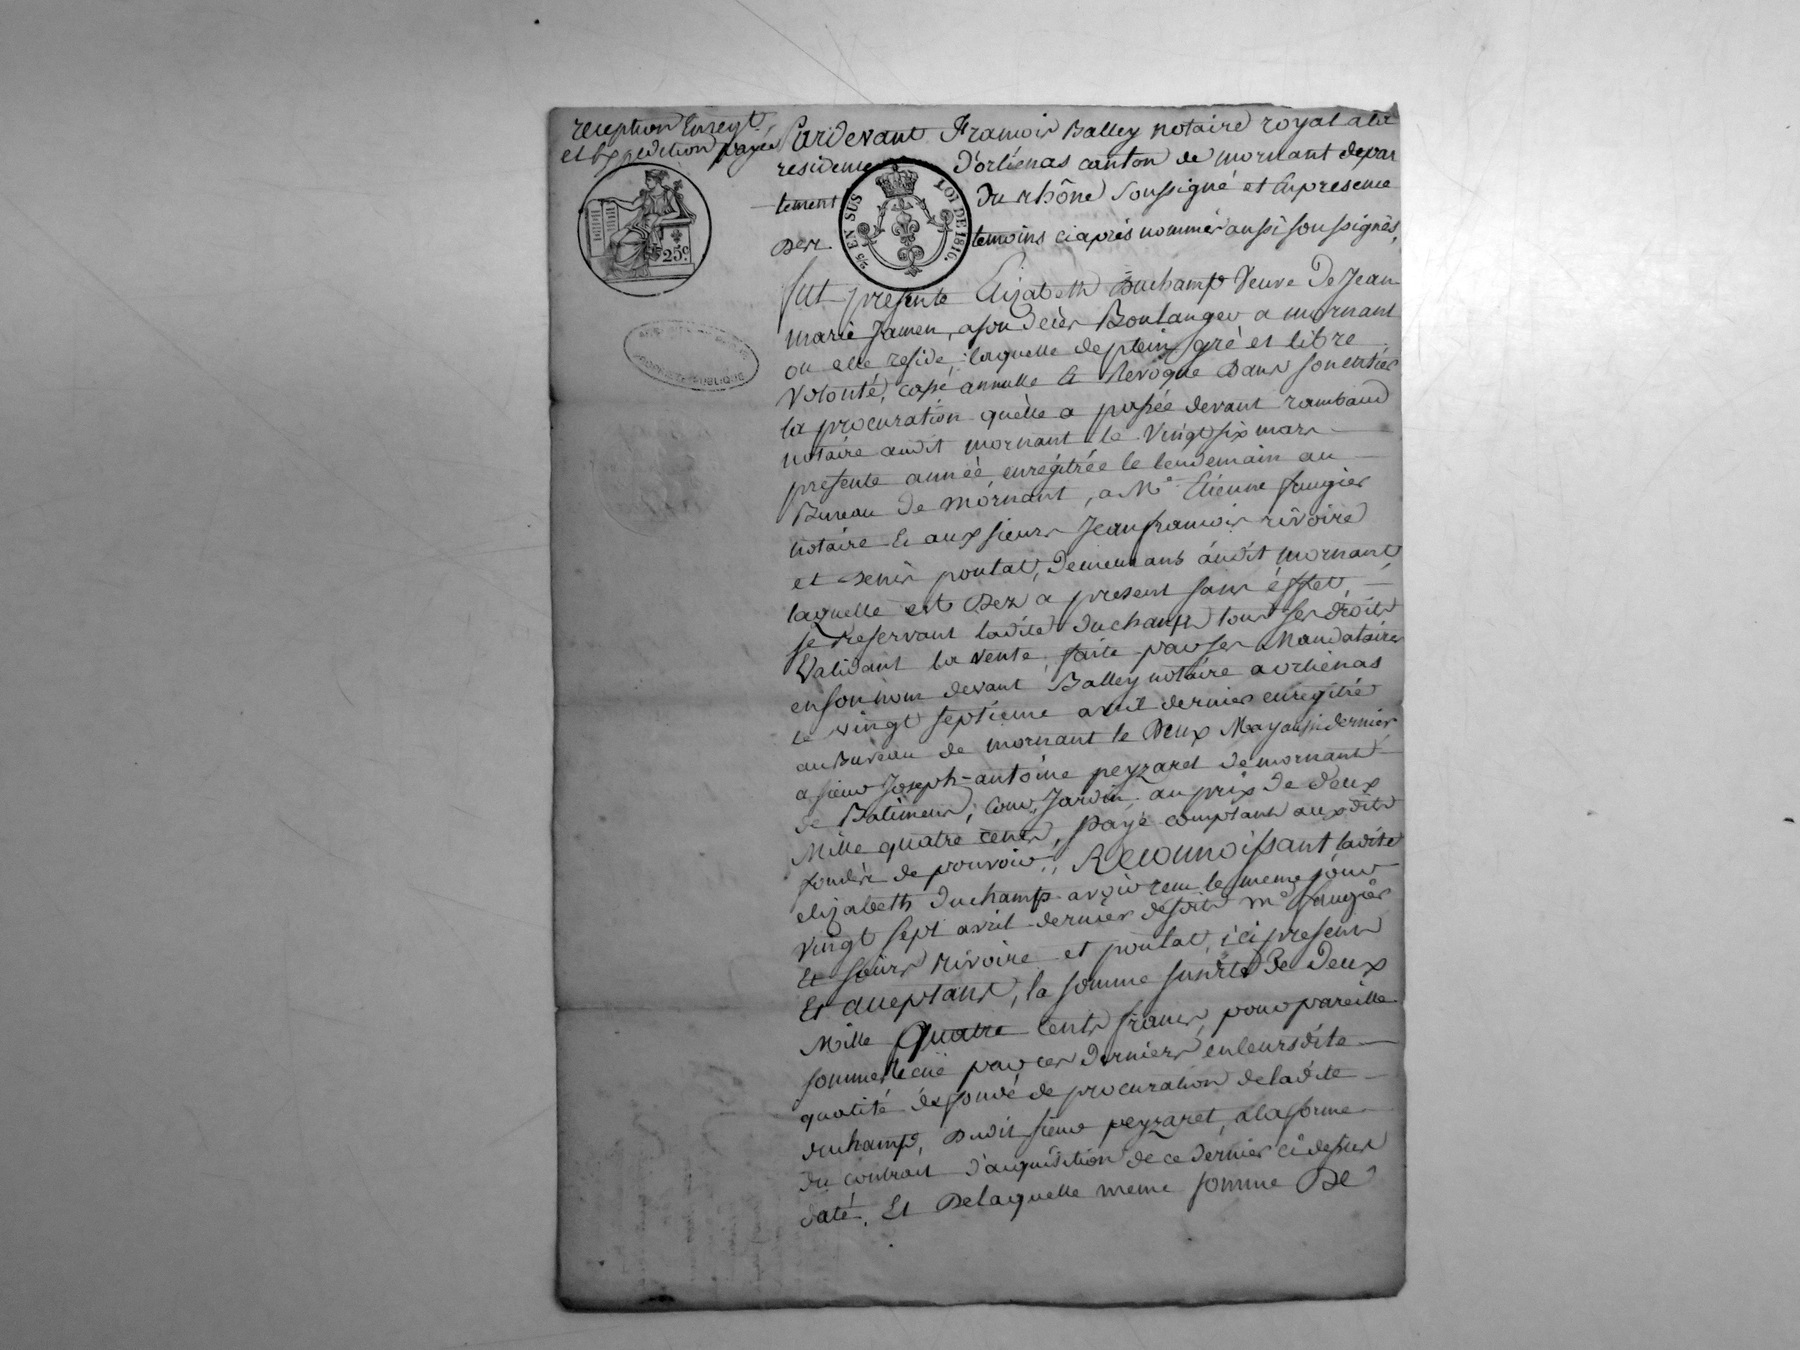 reception Enregt.
et Expedition payée
Pardevant François Balley notaire royal ala
residence d'orlienas canton de mornant depar
tement du rhône soussigné et Enpresence
Des temoins ciaprès nommés aussi soussignés,
25c
5/5 EN SUS LOI DE 1816.
PROPRIÉTÉ PUBLIQUE
fut presente Elizabeth Duchamp Veuve De Jean
marie Jamen, ason decès Boulanger a mornant
ou elle reside : laquelle deplein gré et libre
Volonté, cassé annulle & Revoque Dans sonentier
la procuration quèlle a passée devant rambaud
notaire audit mornant le Vingt six mars
presente année, enregitrée le lendemain au
Bureau de Mornant, a Me. Etienne faugier
notaire & aux sieurs Jeanfrançois rivoire
et Denis poulat, Demeurans audit mornant,
laquelle est Dez a present sans éffet,
se reservant ladite duchamp tous ses droits
Validant la vente, faite par ses Mandataires
ensonnom devant Balley notaire a orlienas
le vingt septieme avril dernier enregitré
au Bureau de mornant le Deux May aussi dernier,
a sieur Joseph-antoine peyzaret de mornant
de Batimens, Cour, Jardin, au prix de deux
Mille quatre cents, payé comptant aux dits
fondés de pouvoir., Reconnoissant ladite
elizabeth duchamp avoir recu le meme jour
vingt sept avril dernier desdits me faugier
Et sieurs rivoire et poulat, ici presens
Et acceptans, la somme susdite De Deux
Mille Quatre Cents francs, pour pareille
somme par ces derniers enleursdite
qualité de fondé de procuration deladite
duchamp, Dudit sieur peyzaret, alaforme
du contrat d'acquisition de ce dernier ci dessus
daté. Et Delaquelle meme somme De